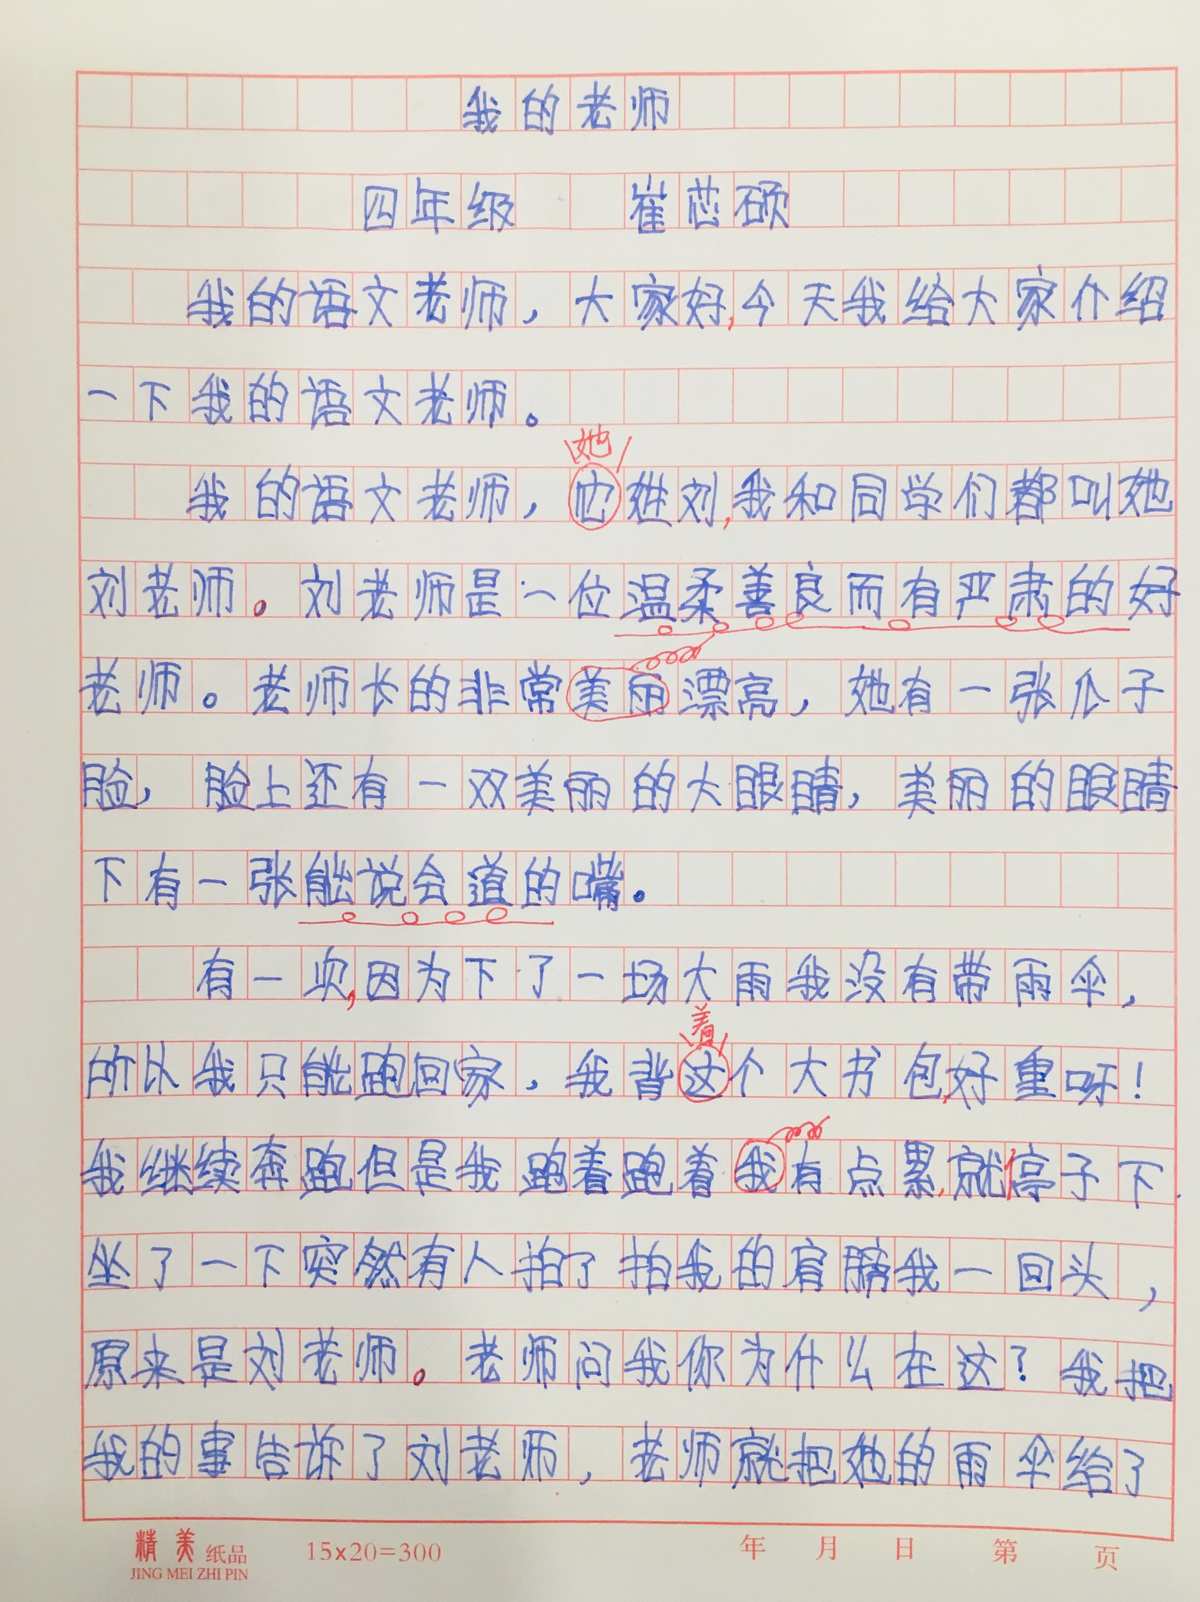 我的老师
四年级 崔芯硕
我的语文老师，大家好，今天我给大家介绍
一下我的语文老师。
她
我的语文老师，它姓刘，我和同学们都叫她
刘老师。刘老师是一位温柔善良而有严肃的好
老师。老师长的非常美丽漂亮，她有一张瓜子
脸，脸上还有一双美丽的大眼睛，美丽的眼睛
下有一张能说会道的嘴。
有一次，因为下了一场大雨我没有带雨伞，
着
所以我只能跑回家，我背这个大书包，好重呀！
我继续奔跑但是我跑着跑着我有点累，就停子下
坐了一下突然有人拍了拍我的肩膀我一回头，
原来是刘老师。老师问我你为什么在这？我把
我的事告诉了刘老师，老师就把她的雨伞给了
精美纸品 15×20=300 年 月 日 第 页
JING MEI ZHI PIN